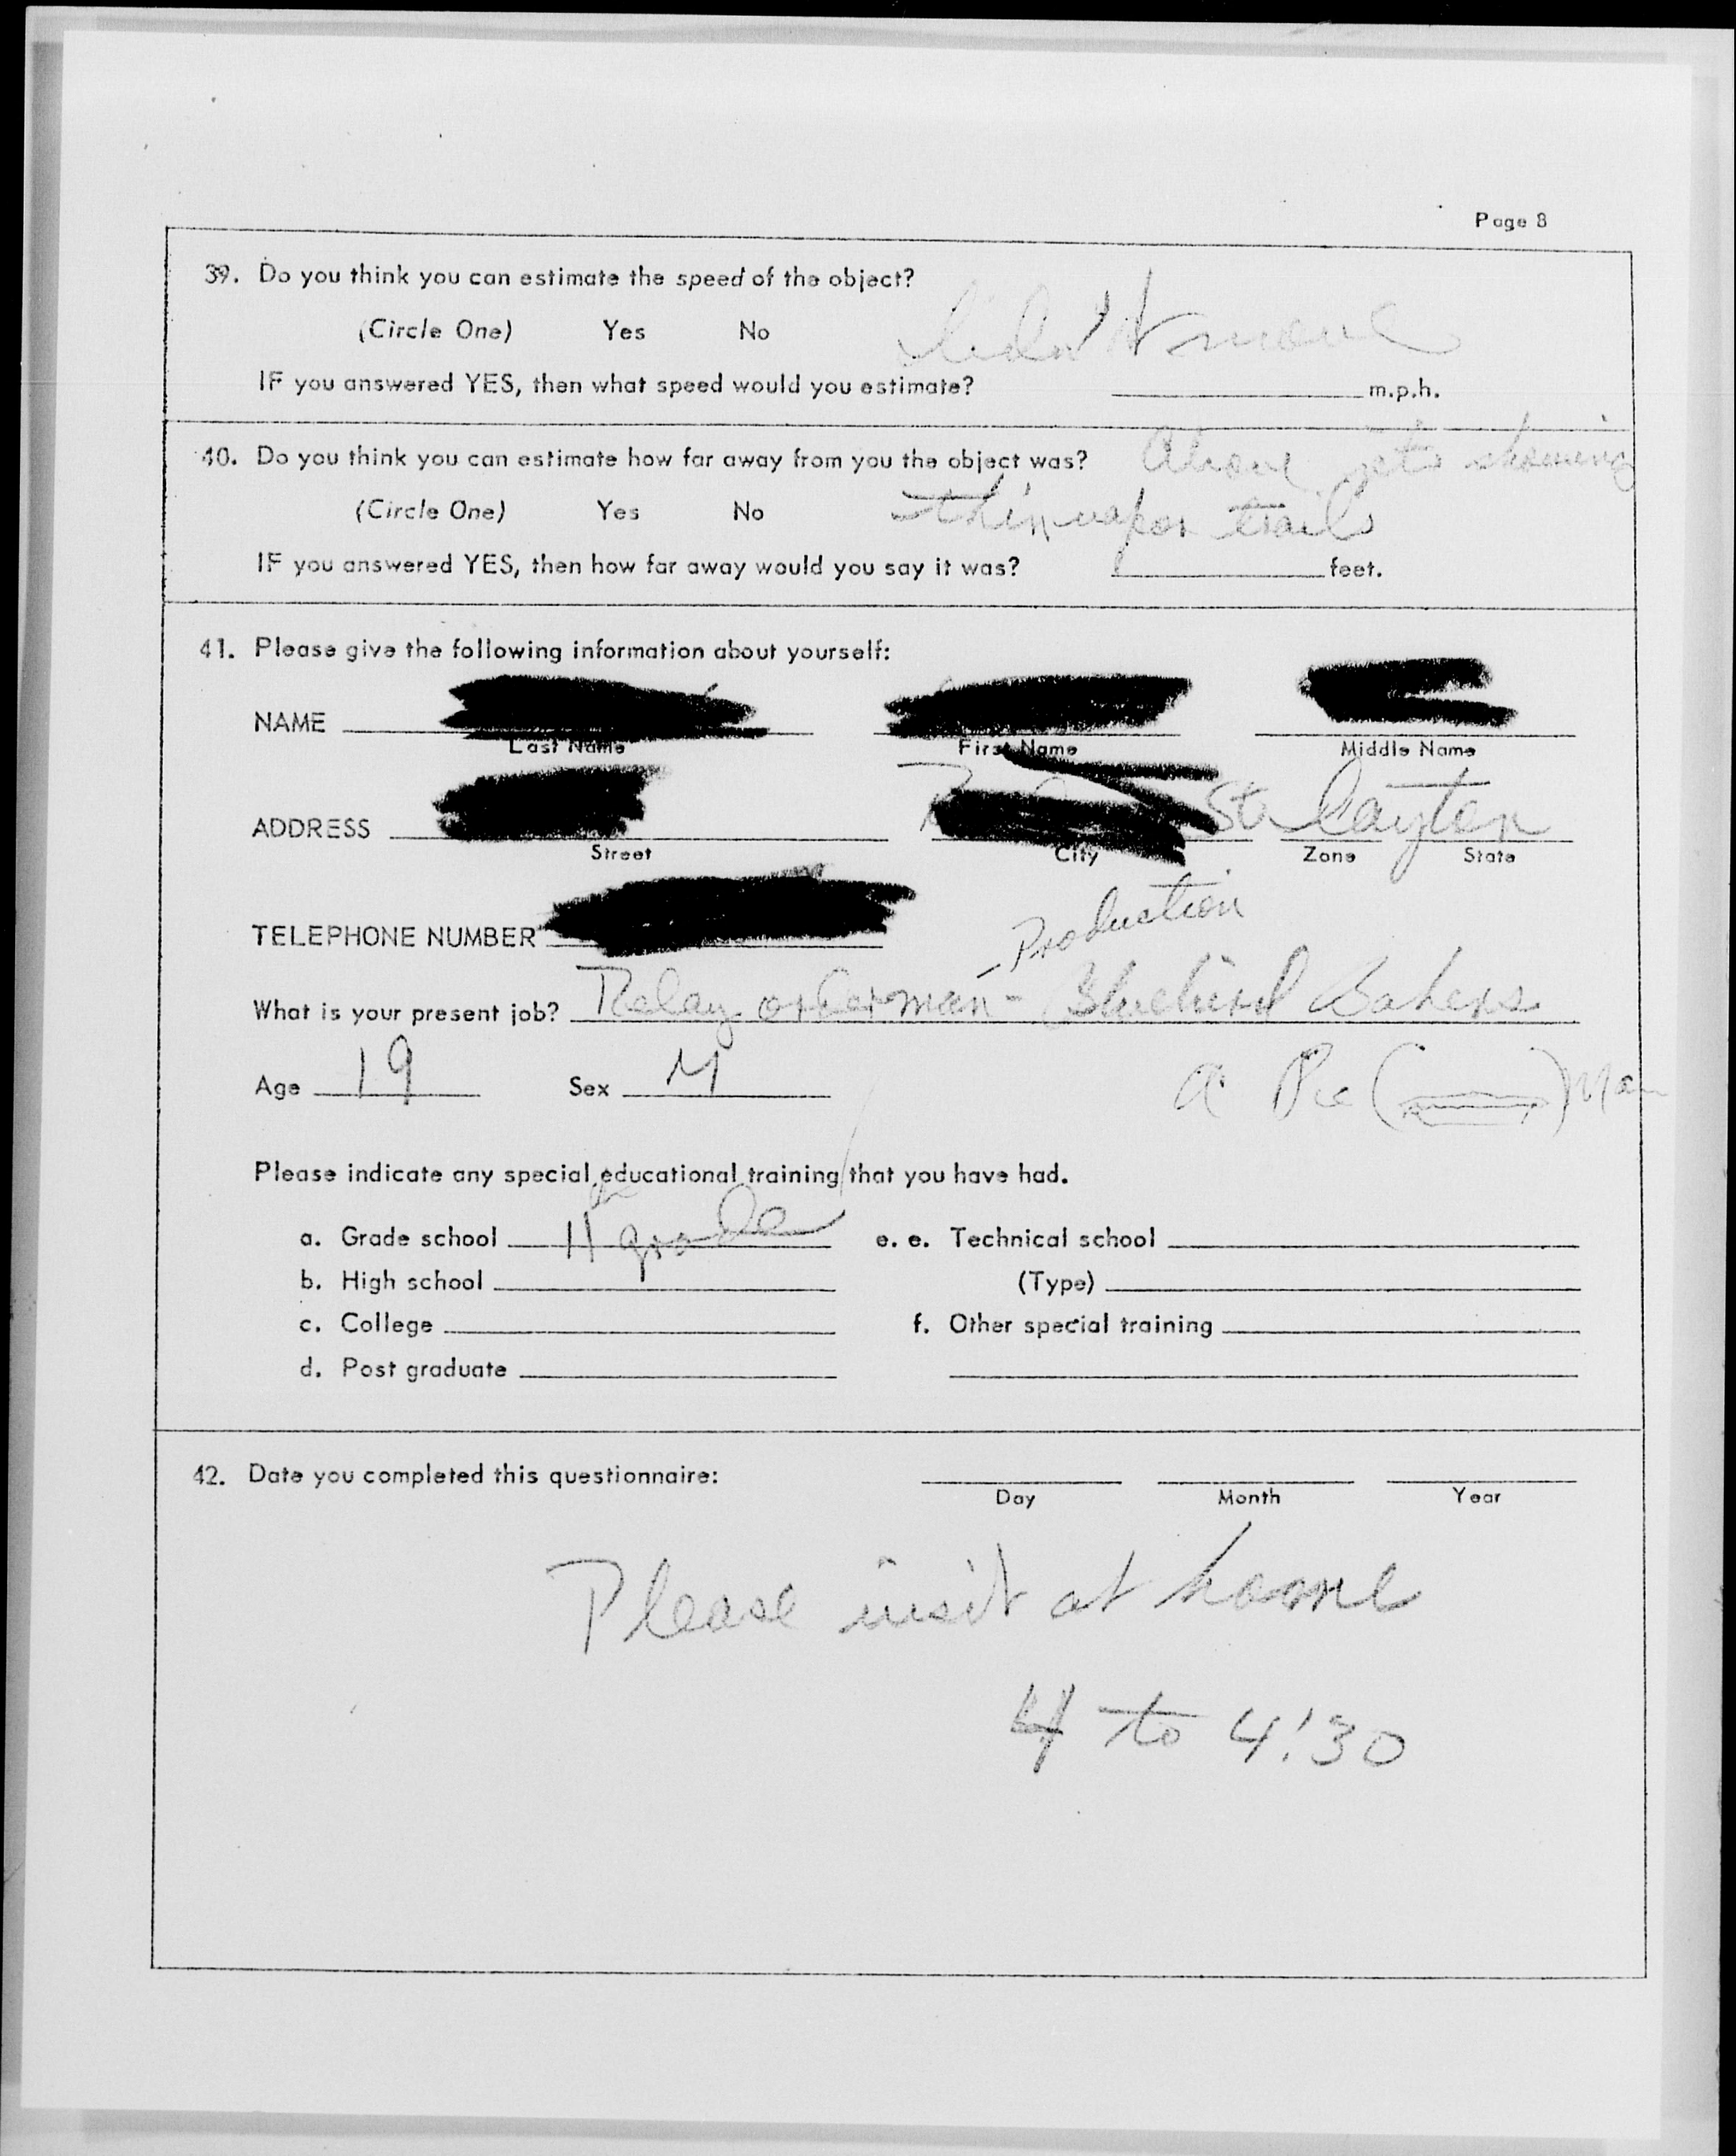 Page 8
39. Do you think you can estimate the speed of the object?
(Circle One) Yes No
didn't move
IF you answered YES, then what speed would you estimate? m.p.h.
40. Do you think you can estimate how far away from you the object was? Above jets showing
(Circle One) Yes No thin vapor trails
IF you answered YES, then how far away would you say it was? feet.
41. Please give the following information about yourself:
NAME
Last Name First Name Middle Name
ADDRESS St. Dayton
Street City Zone State
TELEPHONE NUMBER
- Production
What is your present job? Relay - Bluebird Bakers
Age 19 Sex M
a Pie ( ) Man
Please indicate any special educational training that you have had.
a. Grade school 11th grade e. e. Technical school
b. High school (Type)
c. College f. Other special training
d. Post graduate
42. Date you completed this questionnaire:
Day Month Year
Please visit at home
4 to 4:30